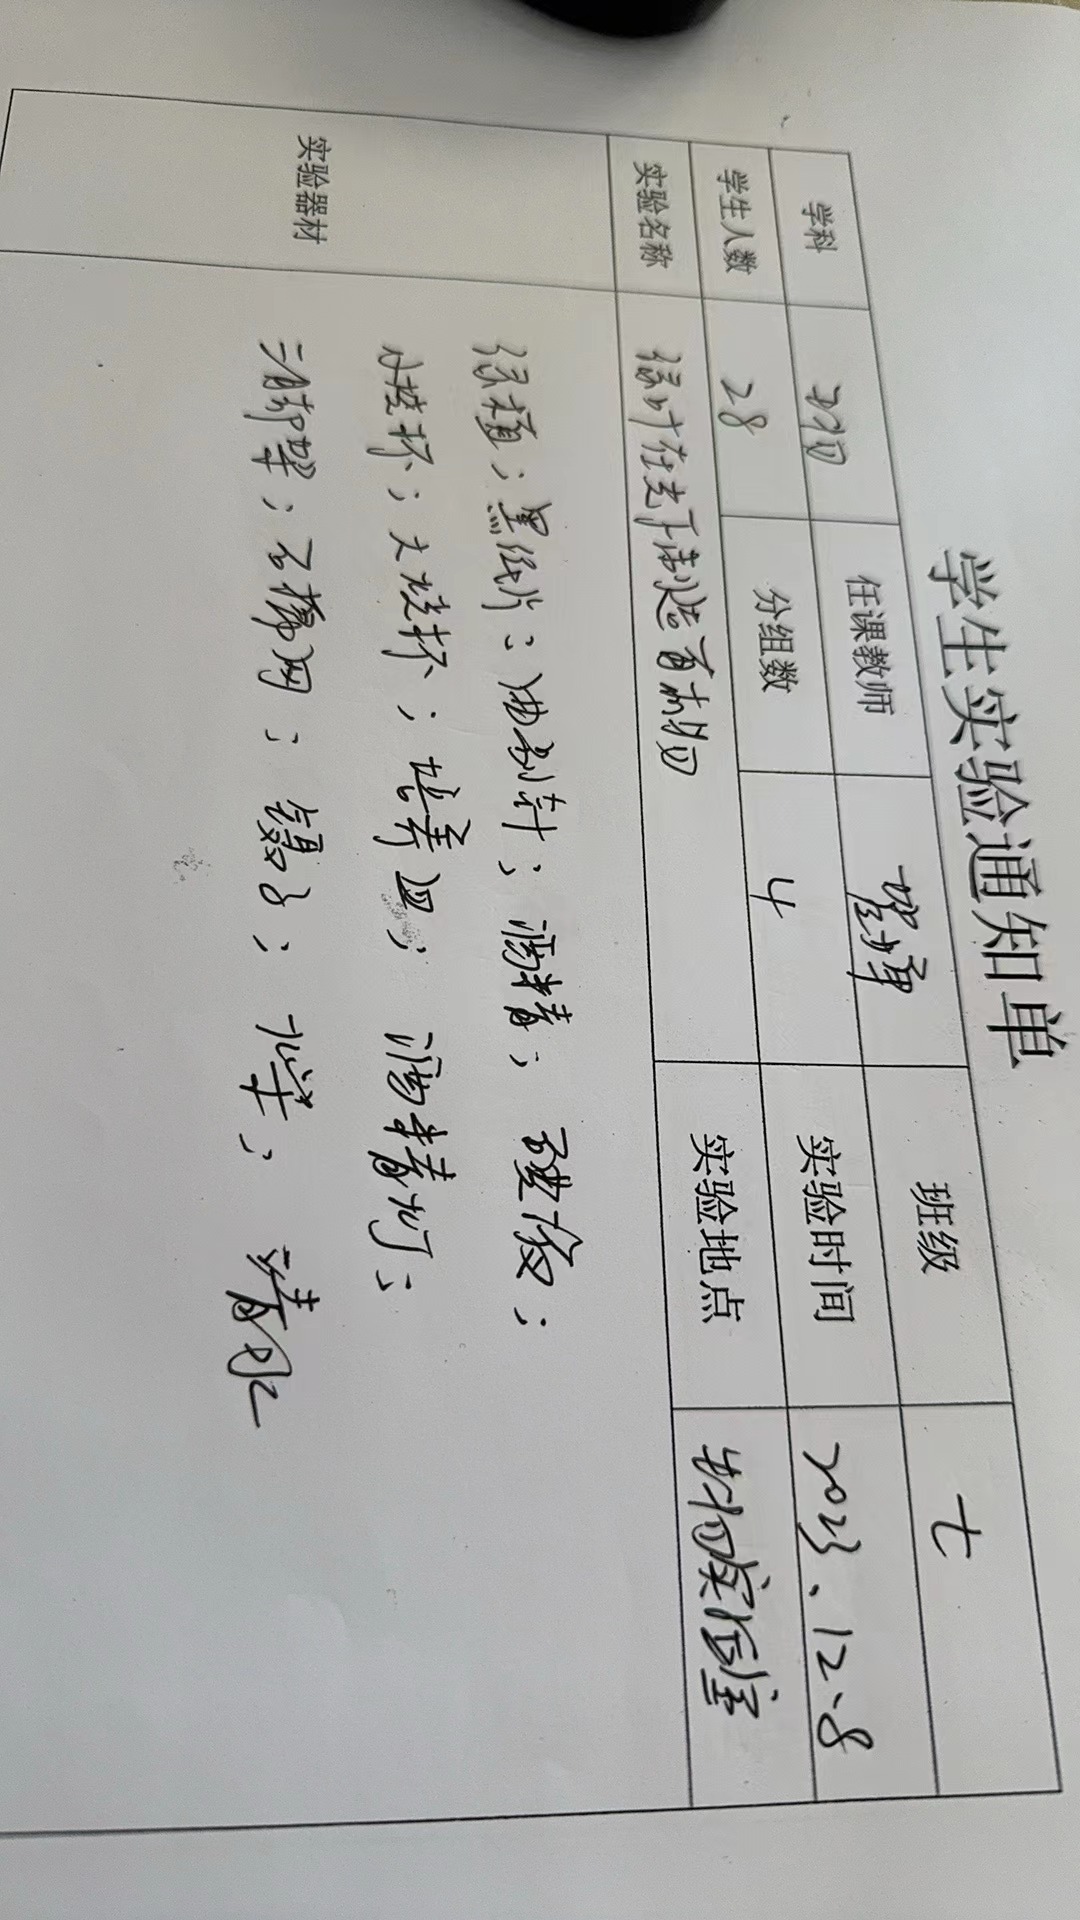 学生实验通知单
学科 生物 任课教师 班级 七
学生人数 28 分组数 4 实验时间 2023、12、8
实验名称 绿叶在光下制造有机物 实验地点 生物实验室
实验器材
绿植；黑纸片；曲别针；酒精；碘液；
小烧杯；大烧杯；培养皿；酒精灯；
三脚架；石棉网；镊子；火柴；清水